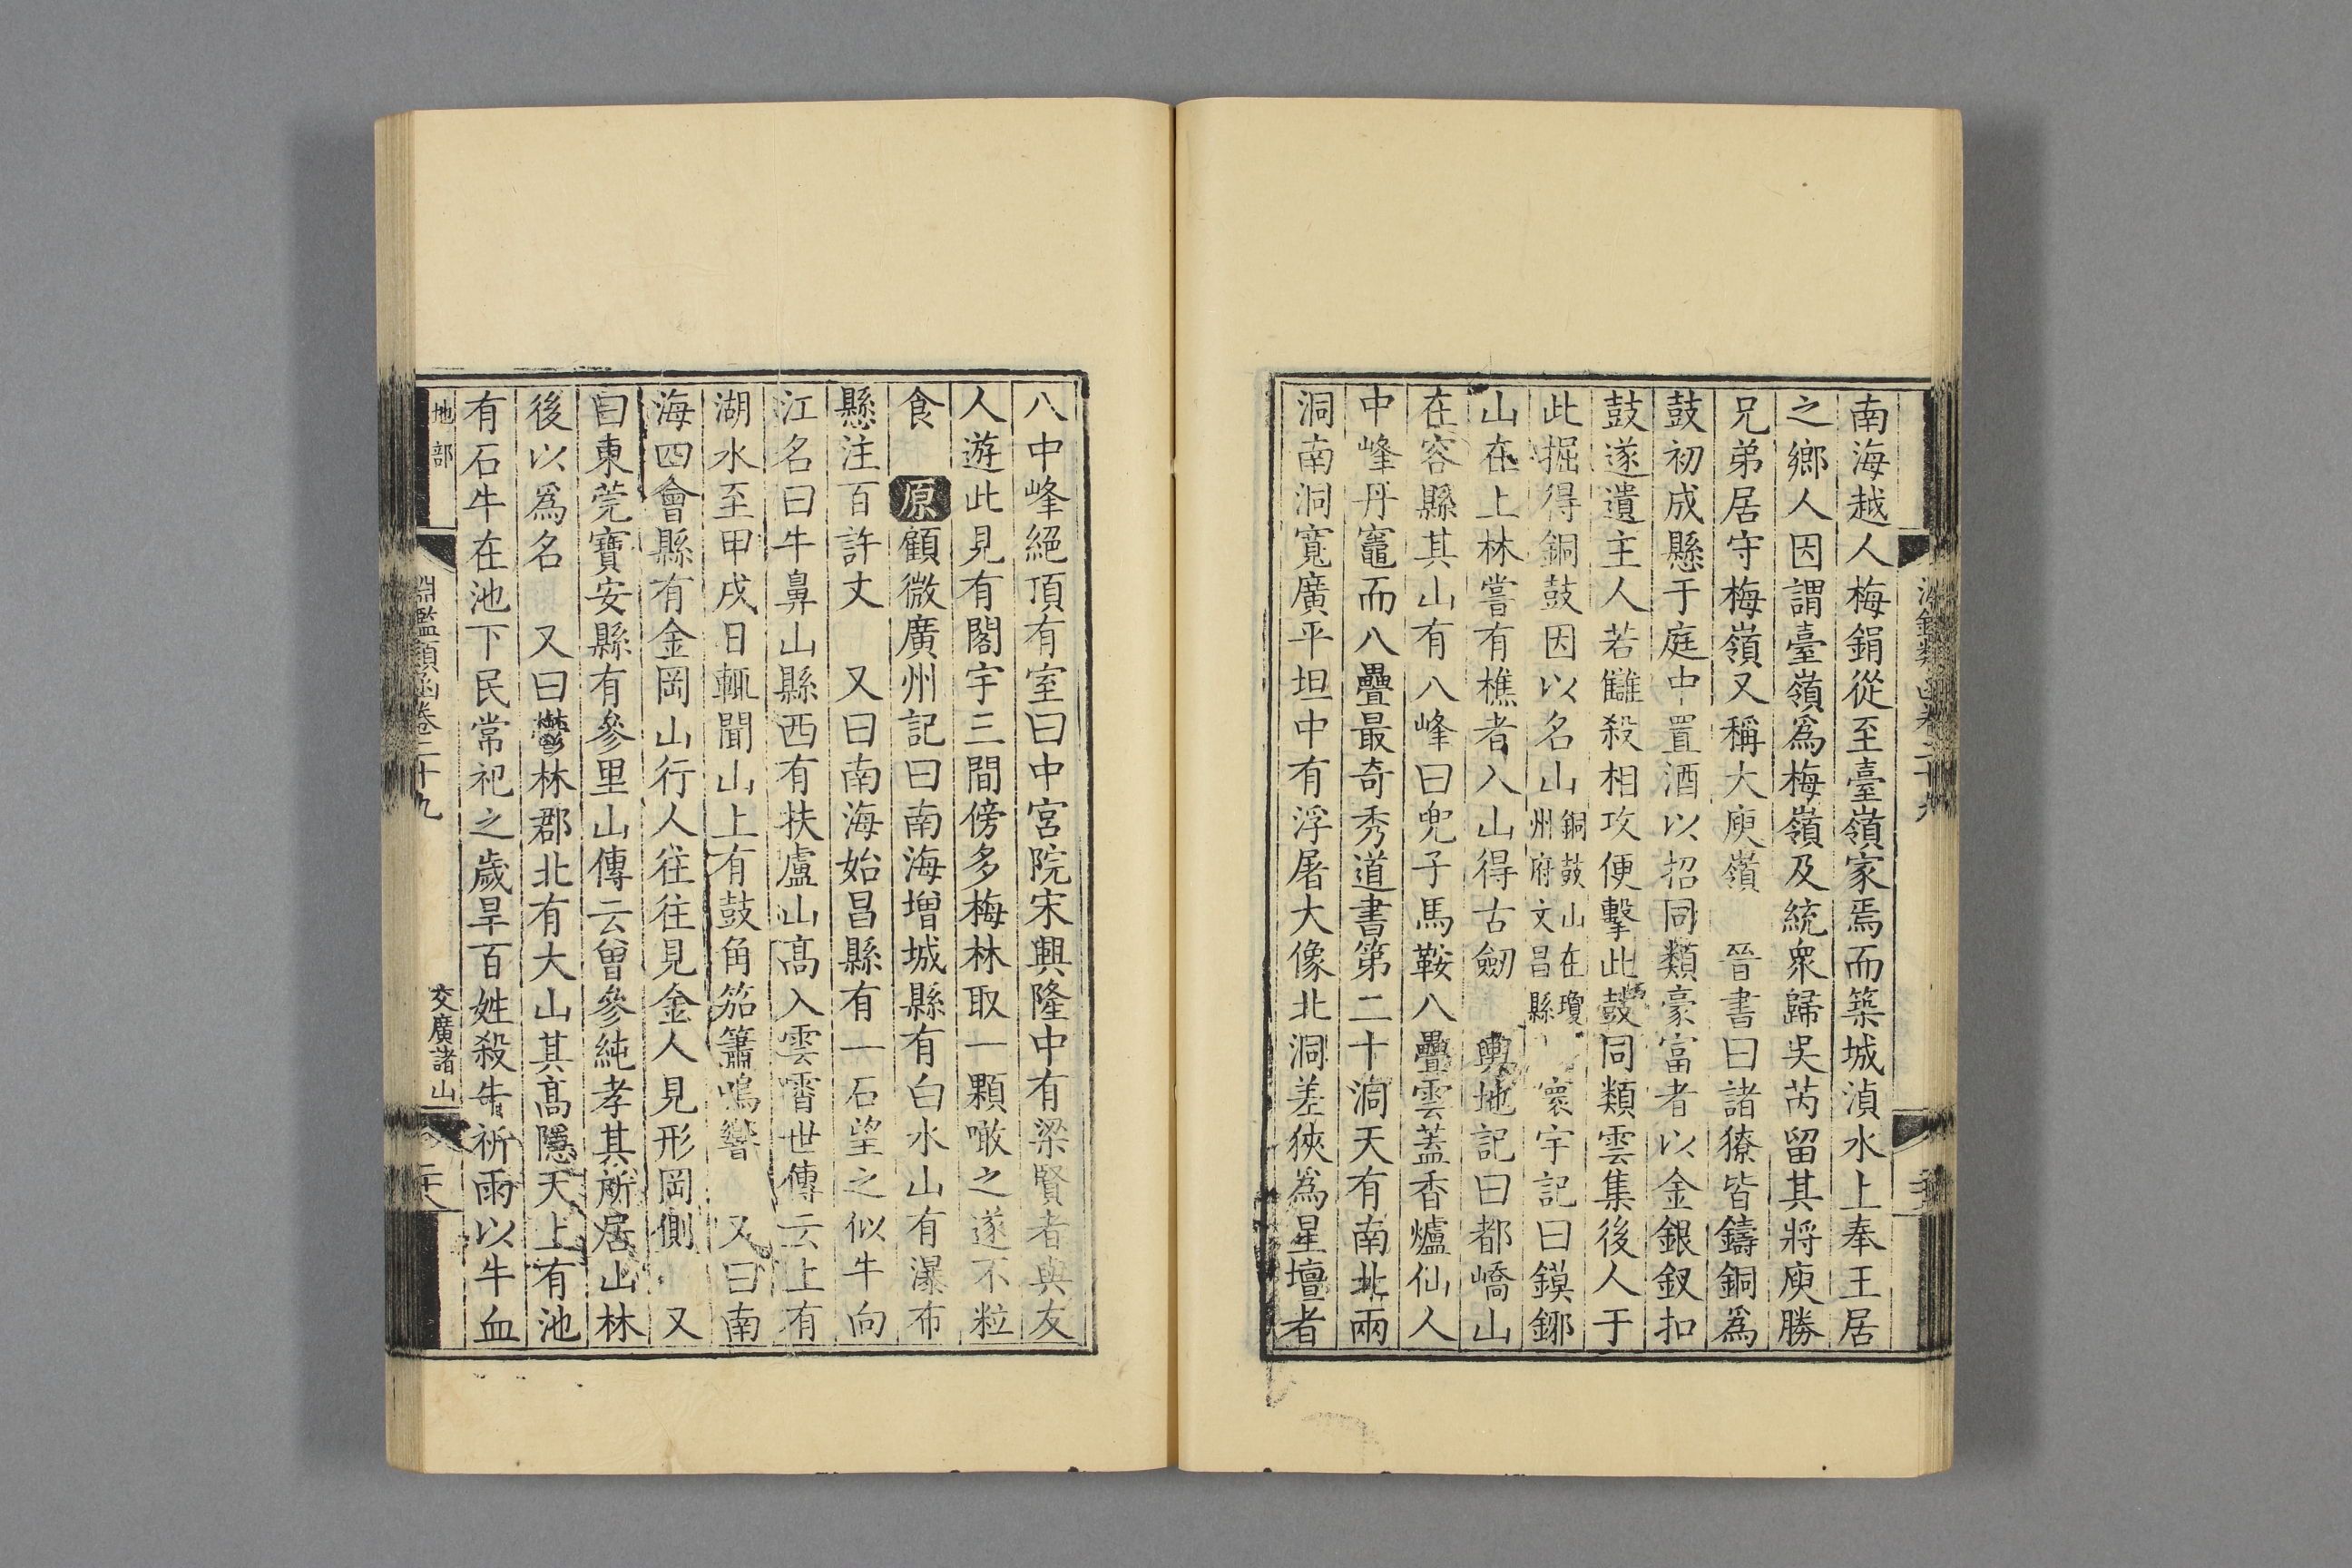 南海越人梅鋗從至臺嶺家焉而築城湞水上奉王居
之鄉人因謂臺嶺爲梅嶺及統衆歸吳芮留其將庾勝
兄弟居守梅嶺又稱大庾嶺　晉書曰諸獠皆鑄銅爲
鼓初成懸于庭中置酒以招同類豪富者以金銀釵扣
鼓遂遺主人若讎殺相攻便擊此鼓同類雲集後人于
此掘得銅鼓因以名山銅鼓山在瓊州府文昌縣　寰宇記曰鏌鎁
山在上林嘗有樵者入山得古劒　輿地記曰都嶠山
在容縣其山有八峰曰兜子馬鞍八疊雲蓋香爐仙人
中峰丹竈而八疊最奇秀道書第二十洞天有南北兩
洞南洞寬廣平坦中有浮屠大像北洞差狹爲星壇者
八中峰絕頂有室曰中宮院宋興隆中有梁賢者與友
人遊此見有閣宇三間傍多梅林取一顆噉之遂不粒
食　原顧微廣州記曰南海增城縣有白水山有瀑布
懸注百許丈　又曰南海始昌縣有一石望之似牛向
江名曰牛鼻山縣西有扶盧山高入雲霄世傳云上有
湖水至甲戌日輒聞山上有鼓角笳簫鳴響　又曰南
海四會縣有金岡山行人往往見金人見形岡側　又
曰東莞寶安縣有參里山傳云曾參純孝其所居山林
後以爲名　又曰鬱林郡北有大山其高隱天上有池
有石牛在池下民常祀之歲旱百姓殺牛祈雨以牛血
地部
淵鑑類函卷二十九
交廣諸山